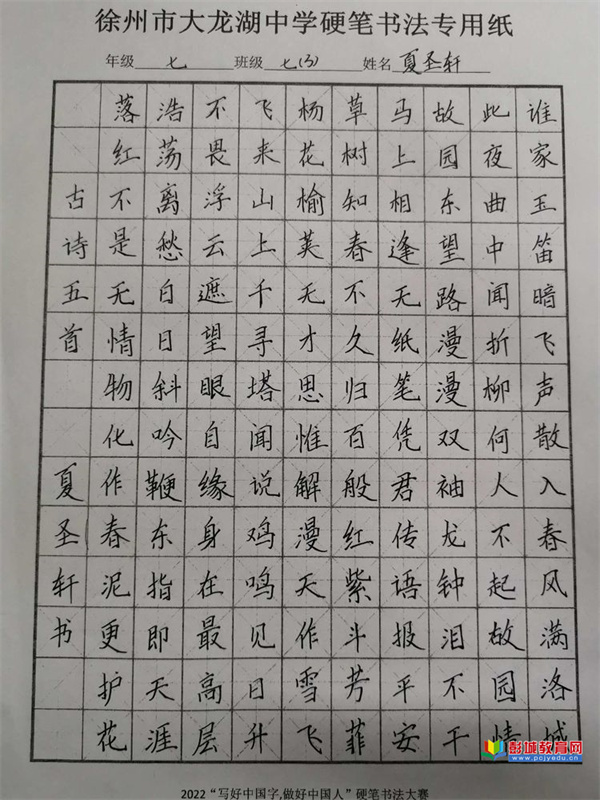 徐州市大龙湖中学硬笔书法专用纸
年级 七 班级 七(3) 姓名 夏圣轩
谁家玉笛暗飞声散入春风满洛城
此夜曲中闻折柳何人不起故园情
故园东望路漫漫双袖龙钟泪不干
马上相逢无纸笔凭君传语报平安
草树知春不久归百般红紫斗芳菲
杨花榆荚无才思惟解漫天作雪飞
飞来山上千寻塔闻说鸡鸣见日升
不畏浮云遮望眼自缘身在最高层
浩荡离愁白日斜吟鞭东指即天涯
落红不是无情物化作春泥更护花
古诗五首 夏圣轩书
2022“写好中国字,做好中国人”硬笔书法大赛
彭城教育网
www.pcjyw.com